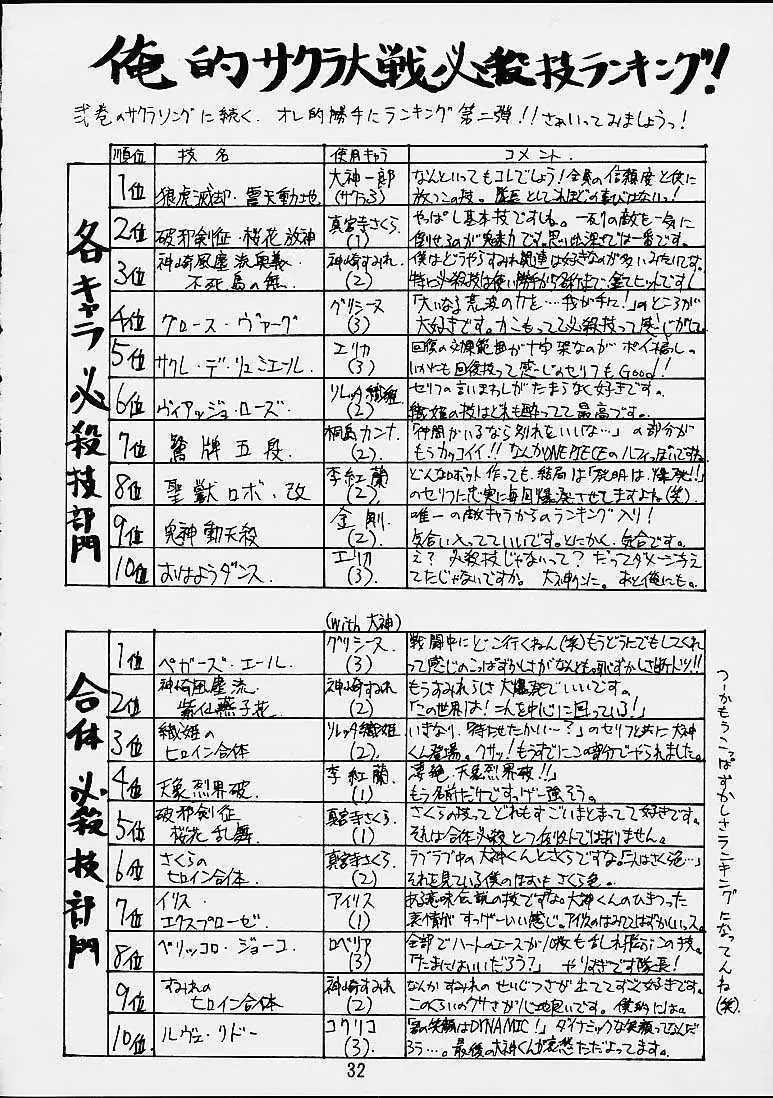 俺的サクラ大戦必殺技ランキング!
弐巻のサクラソングに続く、オレ的勝手にランキング第二弾!!さぁいってみましょうっ!
各キャラ必殺技部門
順位 技名 使用キャラ コメント.
1位 狼虎滅却・震天動地 大神一郎 なんといってもコレでしょう!全員の信頼度と供に
放つこの技。隊長としてこれほどの喜びはないっ!
2位 破邪剣征・桜花放神 真宮寺さくら (1) やっぱし基本技ですしね。一列の敵も一気に
倒せるのが魅力です。思い出深さでは一番です。
3位 神崎風塵流奥義・不死鳥の舞 神崎すみれ (2) 僕はどうやらすみれ関連は好きなのが多いみたいです。
特に必殺技は使い勝手から名称まで全てヒットです!
4位 グロース・ヴァーグ グリシーヌ (3) 「大いなる荒波の力を…我が手に!」のところが
大好きです。
5位 サクレ・デ・リュミエール エリカ (3) 回復の効果範囲が十字架なのがポイント高しの
いかにも回復技って感じのセリフもGood!
6位 ヴィアッジョ・ローズ ソレッタ織姫 (2) セリフの言いまわしがたまらなく好きです。
織姫の技はどれも酔ってて最高です。
7位 鷲牌五段 桐島カンナ (2) 「仲間がいるなら別れをいいな…」の部分が
もうカッコイイ!!なんかONE PIECEのルフィっぽいですね
8位 聖獣ロボ・改 李紅蘭 (2) どんなロボット作っても、結局は「発明は爆発!!」
のセリフに忠実に毎回爆発させてますよね(笑)
9位 鬼神轟天殺 金剛 (2) 唯一の敵キャラからのランキング入り!
気合い入ってていいです。とにかく、気合です。
10位 おはようダンス エリカ (3) え?必殺技じゃないって?だってダメージ与え
てたじゃないですか。大神クンに。あと俺にも。
合体必殺技部門
(with 大神)
1位 ペガーズ・エール グリシーヌ (3) 戦闘中にどこ行くねん(笑)もうどうにでもしてくれ
って感じのこっぱずかしさがなんとも。恥ずかしさ断トツ!!
2位 神崎風塵流 紫仙燕子花 神崎すみれ (2) もうすみれらしさ大爆発でいいです。
「この世界は!二人を中心に回っている!」
3位 織姫のヒロイン合体 ソレッタ織姫 (2) いきなり、「待たせたかい〜?」のセリフと共に大神
くん登場。クサッ!もうすでにこの部分でやられました。
4位 天象烈界破. 李紅蘭 (1) 「凄絶、天象烈界破!!」
もう名前だけですっげー強そう。
5位 破邪剣征 桜花乱舞 真宮寺さくら (1) さくらの技ってどれもすごいまとまってて好きです。
それは合体必殺とて例外ではありません。
6位 さくらのヒロイン合体. 真宮寺さくら (2) ラブラブ中の大神くんとさくらですな。「人はさくら色…」
それを見ている僕のほおもさくら色。
7位 イリス・エクスプローゼ アイリス (1) ある意味伝説の技ですな。大神くんのひきつった
表情がすっげーいい感じ。
8位 ベリッコロ・ジョーコ ロベリア (3) 全部でハートのエースが10枚もまじれ飛ぶこの技。
「たまにはいいだろう?」やりすぎです隊長!
9位 すみれのヒロイン合体 神崎すみれ (2) なんかすみれのせいじつさが出ててすごく好きです。
このくらいのクサさが心地良いです。僕的には。
10位 ルヴェ・リドー コクリコ (3). 「君の笑顔はDYNAMIC!」ダイナミックな笑顔ってなんだ
ろう…。最後の大神くんが哀愁ただよってます。
つーかもうこっぱずかしさランキングになってんね(笑)
32